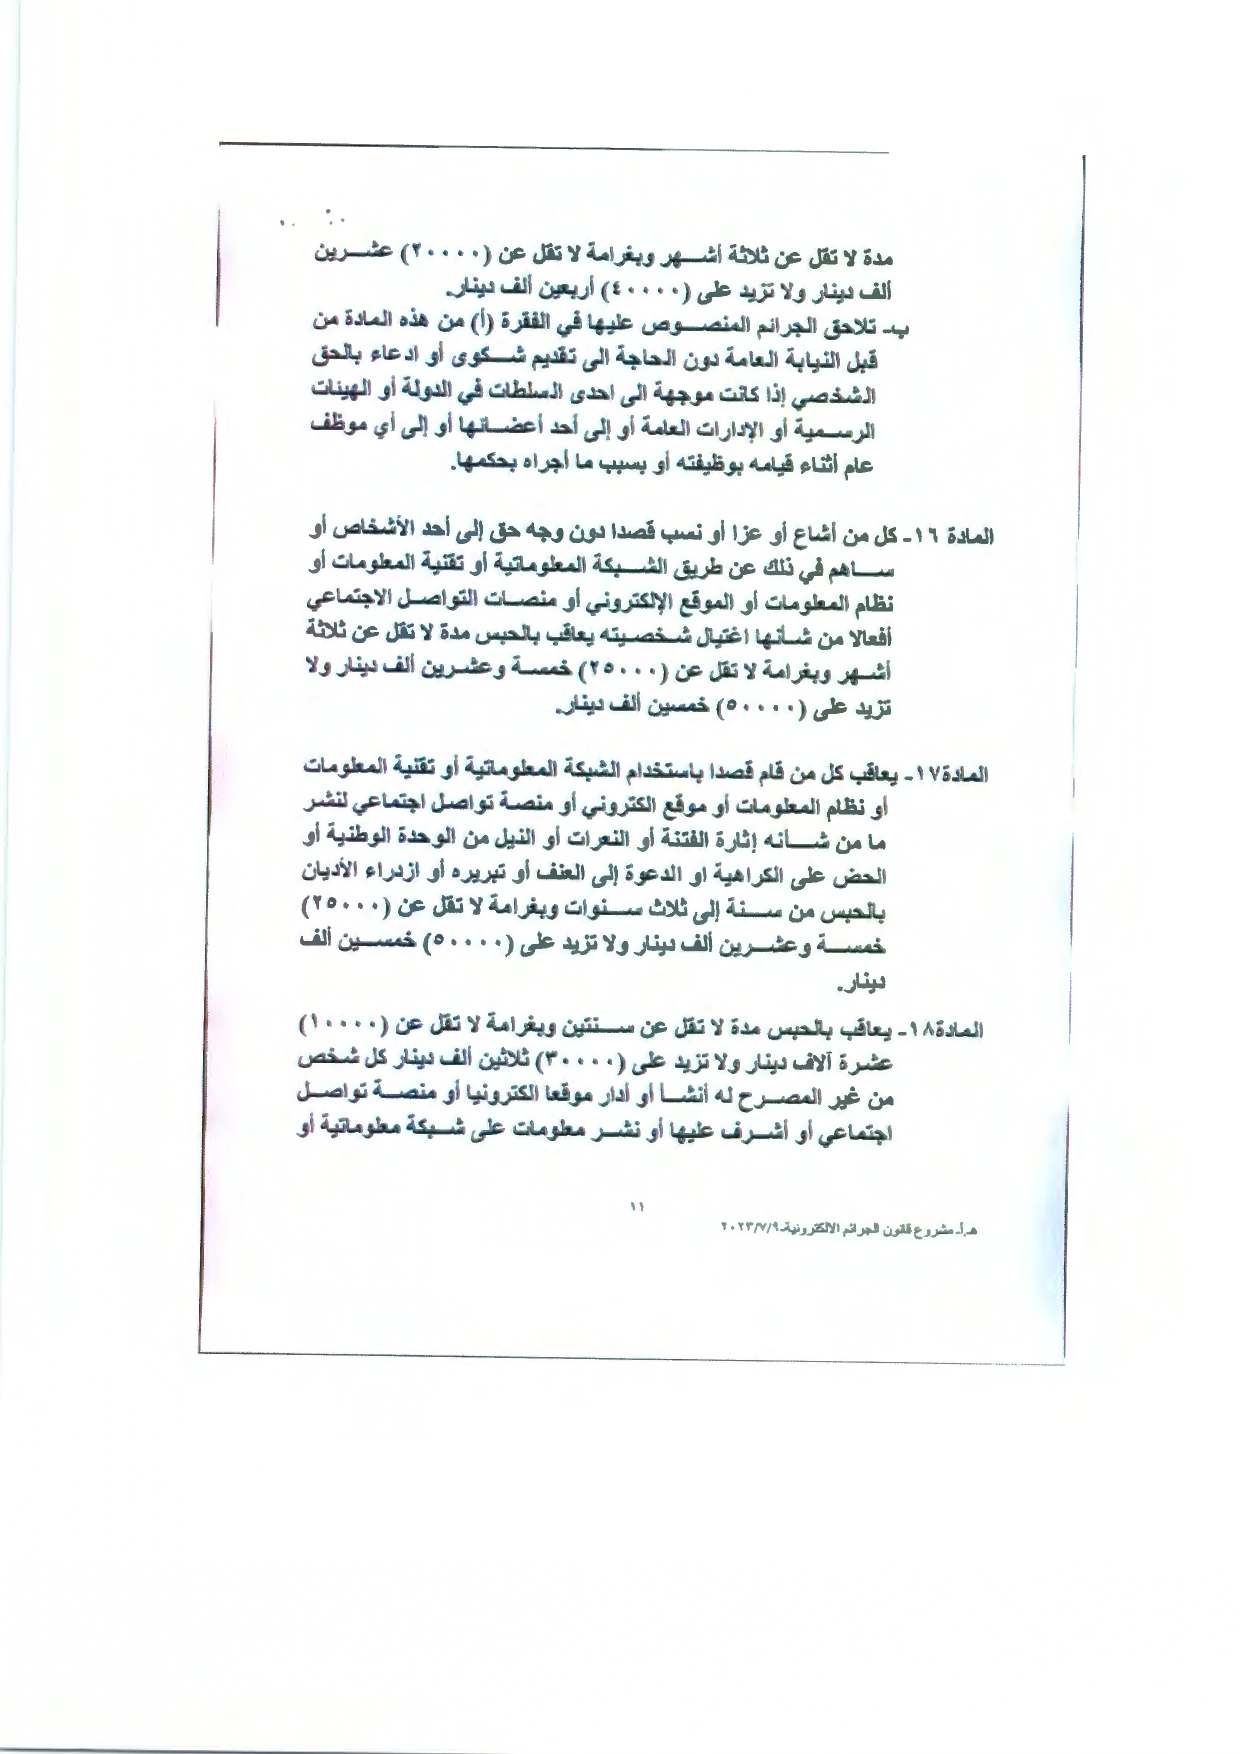 مدة لا تقل عن ثلاثة أشهر وبغرامة لا تقل عن (٢٠٠٠٠) عشرين
ألف دينار ولا تزيد على (٤٠٠٠٠) أربعين ألف دينار.
ب- تلاحق الجرائم المنصوص عليها في الفقرة (أ) من هذه المادة من
قبل النيابة العامة دون الحاجة الى تقديم شكوى أو ادعاء بالحق
الشخصي إذا كانت موجهة الى احدى السلطات في الدولة أو الهيئات
الرسمية أو الإدارات العامة أو إلى أحد أعضائها أو إلى أي موظف
عام أثناء قيامه بوظيفته أو بسبب ما أجراه بحكمها.
المادة ١٦- كل من أشاع أو عزا أو نسب قصدا دون وجه حق إلى أحد الأشخاص أو
ساهم في ذلك عن طريق الشبكة المعلوماتية أو تقنية المعلومات أو
نظام المعلومات أو الموقع الإلكتروني أو منصات التواصل الاجتماعي
أفعالا من شأنها اغتيال شخصيته يعاقب بالحبس مدة لا تقل عن ثلاثة
أشهر وبغرامة لا تقل عن (٢٥٠٠٠) خمسة وعشرين ألف دينار ولا
تزيد على (٥٠٠٠٠) خمسين ألف دينار.
المادة١٧- يعاقب كل من قام قصدا باستخدام الشبكة المعلوماتية أو تقنية المعلومات
أو نظام المعلومات أو موقع الكتروني أو منصة تواصل اجتماعي لنشر
ما من شأنه إثارة الفتنة أو النعرات أو النيل من الوحدة الوطنية أو
الحض على الكراهية او الدعوة إلى العنف أو تبريره أو ازدراء الأديان
بالحبس من سنة إلى ثلاث سنوات وبغرامة لا تقل عن (٢٥٠٠٠)
خمسة وعشرين ألف دينار ولا تزيد على (٥٠٠٠٠) خمسين ألف
دينار.
المادة١٨- يعاقب بالحبس مدة لا تقل عن سنتين وبغرامة لا تقل عن (١٠٠٠٠)
عشرة آلاف دينار ولا تزيد على (٣٠٠٠٠) ثلاثين ألف دينار كل شخص
من غير المصرح له أنشأ أو أدار موقعا الكترونيا أو منصة تواصل
اجتماعي أو أشرف عليها أو نشر معلومات على شبكة معلوماتية أو
١١
هـ.أ- مشروع قانون الجرائم الالكترونية-٢٠٢٣/٧/٩